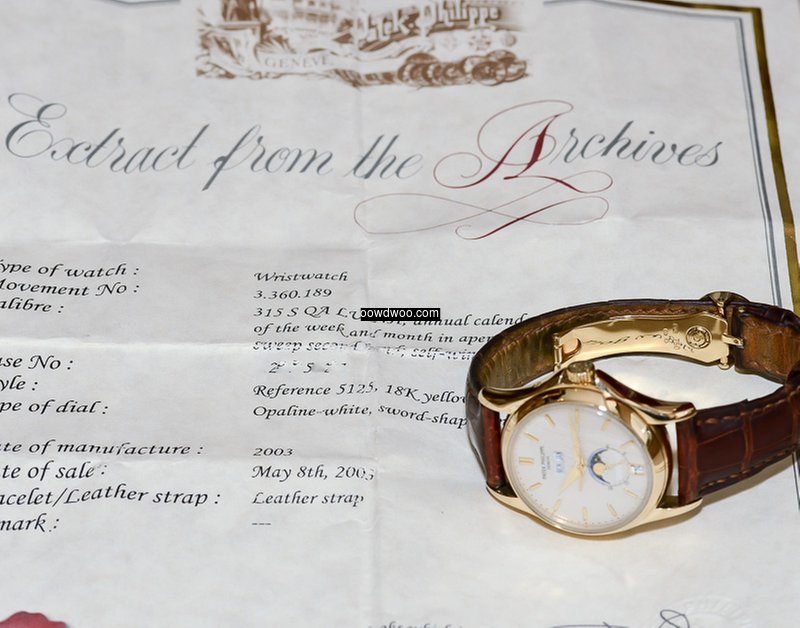 Patek Philippe
GENEVE
Extract from the Archives
ype of watch : Wristwatch
Movement No : 3.360.189
alibre : 315 S QA annual calend
bowdwoo.com
of the week and month in aper
sweep second self-win
ase No :
yle : Reference 5125, 18K yellow
pe of dial : Opaline-white, sword-shap
ate of manufacture : 2003
ate of sale : May 8th, 2003
acelet/Leather strap : Leather strap
mark : ---
PATEK PHILIPPE